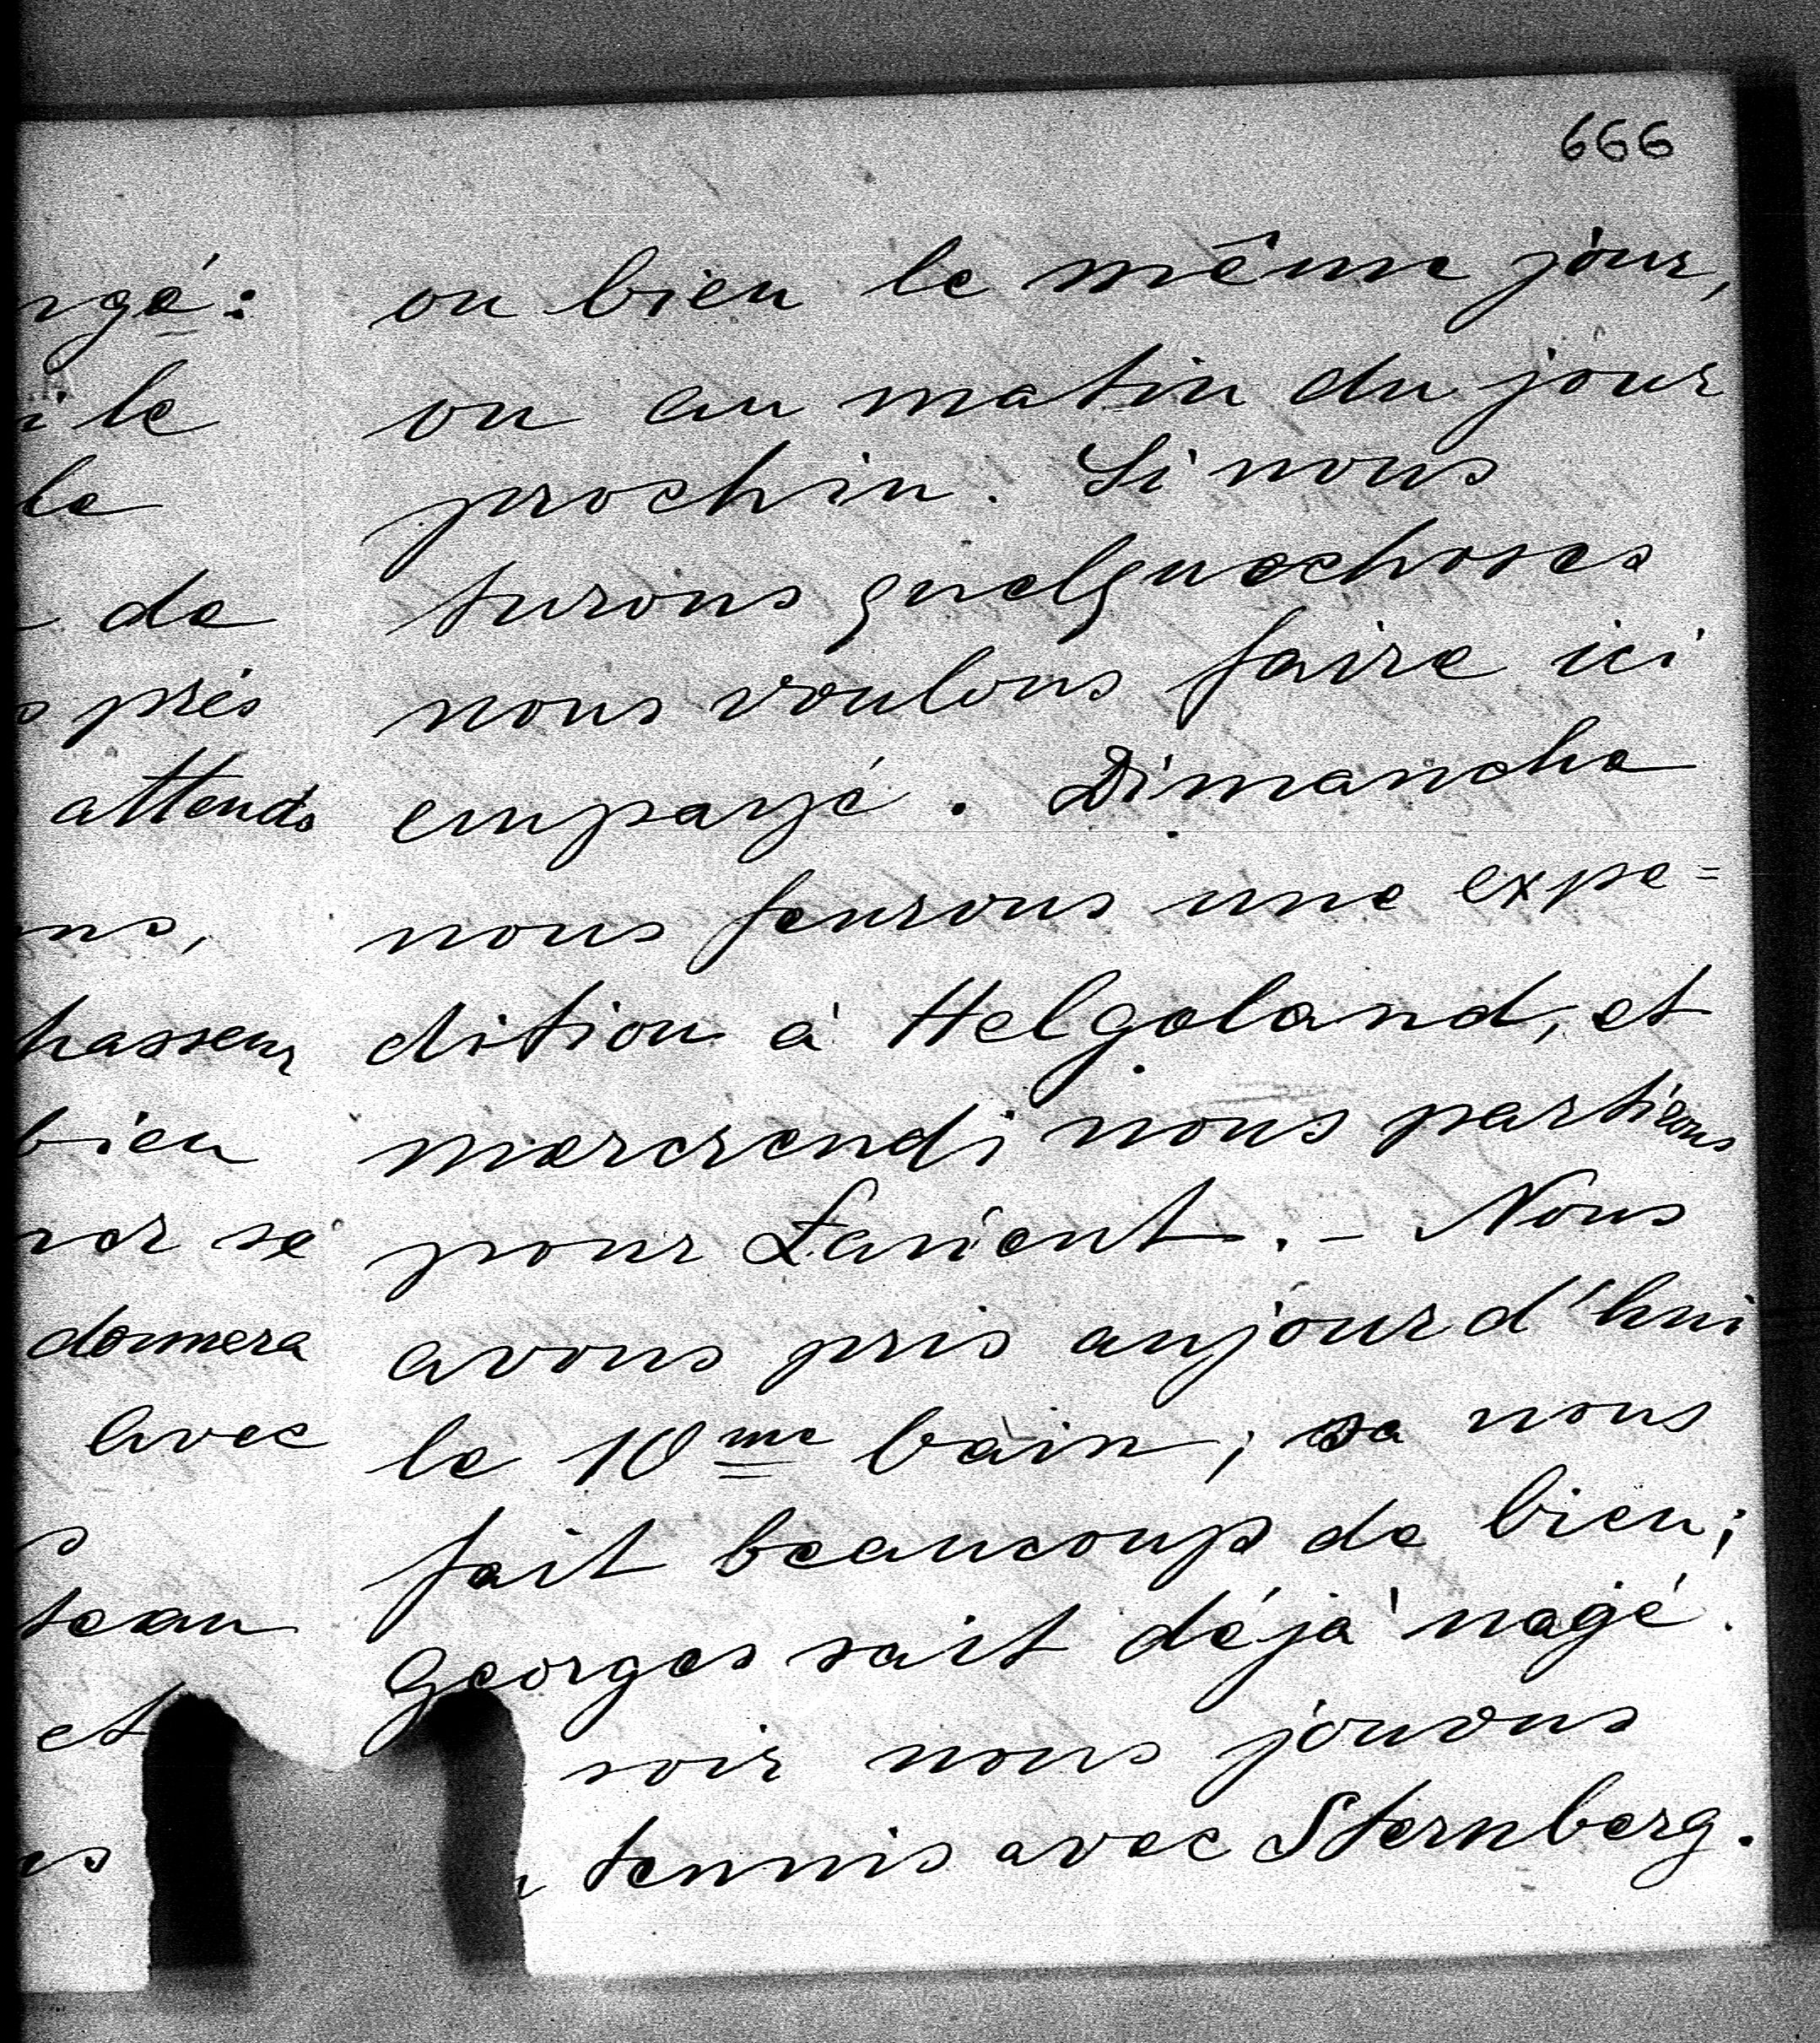 666
ngé:
i le
la
de
près
attends
ns,
hasseur
bien
ner se
donnera
avec
seau
et
es
ou bien le même jour,
ou au matin du jour
prochin. Si nous
turons quelquechoses
nous voulons faire ici
empayé. Dimanche
nous feurons une expe=
dition à Helgoland, et
mercrendi nous partirons
pour Larient. - Nous
avons pris aujourd'hui
le 10me bain; sa nous
fait beaucoup de bien;
Georges sait déjà nagé.
soir nous jouons
tennis avec Sternberg.